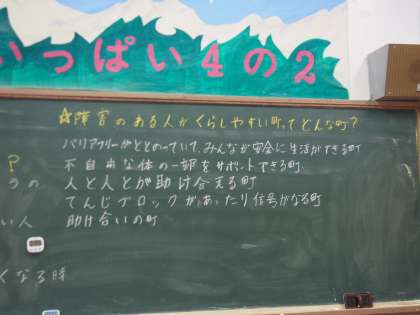 いっぱい4の2
☆障害のある人がくらしやすい町ってどんな町?
バリアフリーがととのっていて、みんなが安全に生活ができる町
? 不自由な体の一部をサポートできる町
うの 人と人とが助け合える町
てんじブロックがあったり信号がなる町
い人 助け合いの町
くなる時